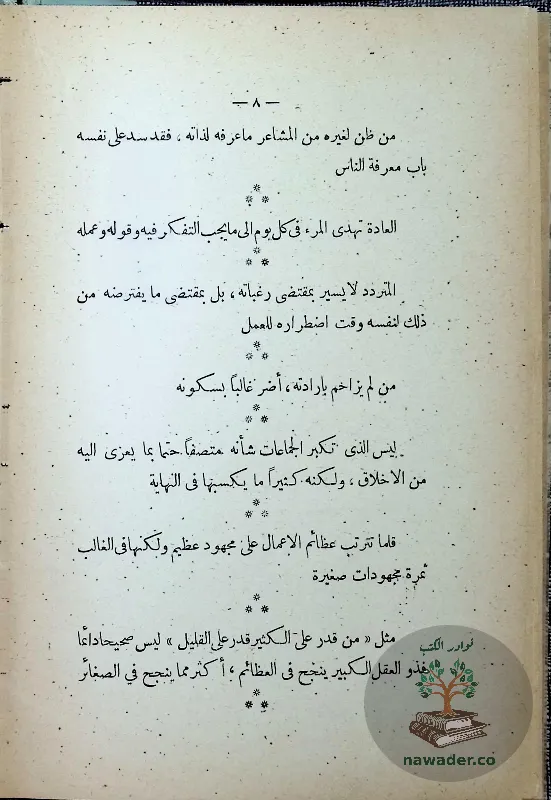 — ٨ —
من ظن لغيره من المشاعر ماعرفه لذاته ، فقد سد على نفسه
باب معرفة الناس
العادة تهدى المرء فى كل يوم الى ما يجب التفكر فيه وقوله وعمله
المتردد لا يسير بمقتضى رغباته ، بل بمقتضى ما يفترضه من
ذلك لنفسه وقت اضطراره للعمل
من لم يزاحم بارادته ، أضر غالباً بسكونه
ليس الذى تكبر الجماعات شأنه متصفاً حتما بما يعزى اليه
من الاخلاق ، ولكنه كثيراً ما يكسبها فى النهاية
قلما تترتب عظائم الاعمال على مجهود عظيم ولكنها فى الغالب
ثمرة مجهودات صغيرة
مثل « من قدر على الكثير قدر على القليل » ليس صحيحا دائما
فذو العقل الكبير ينجح فى العظائم ، أكثر مما ينجح في الصغائر
نوادر الكتب
nawader.co